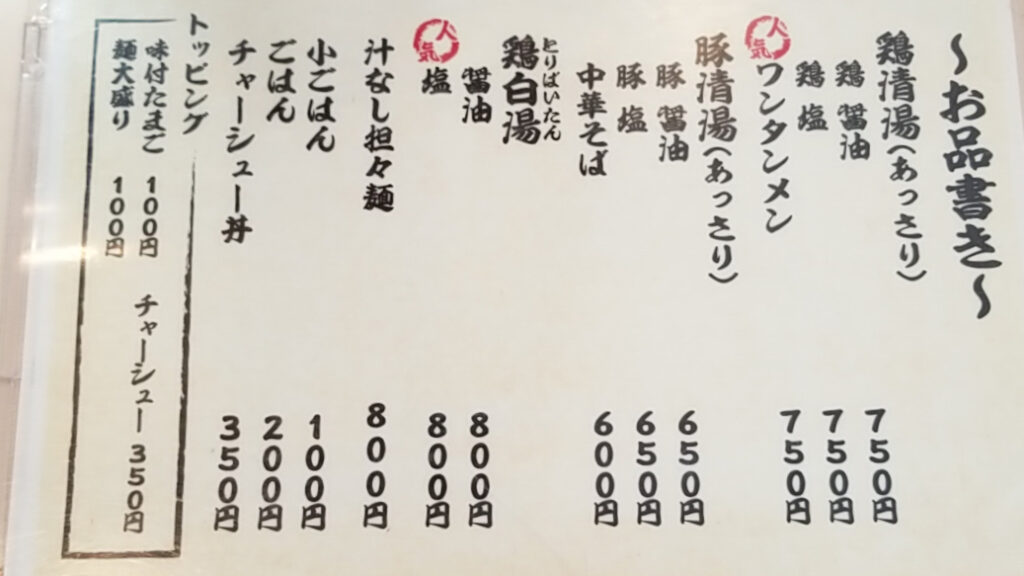 ～お品書き～
鶏清湯(あっさり)
鶏 醤油 750円
鶏 塩 750円
人気
ワンタンメン 750円
豚清湯(あっさり)
豚 醤油 650円
豚 塩 650円
中華そば 600円
とりぱいたん
鶏白湯
醤油 800円
人気
塩 800円
汁なし担々麺 800円
小ごはん 100円
ごはん 200円
チャーシュー丼 350円
トッピング
味付たまご 100円
チャーシュー 350円
麺大盛り 100円